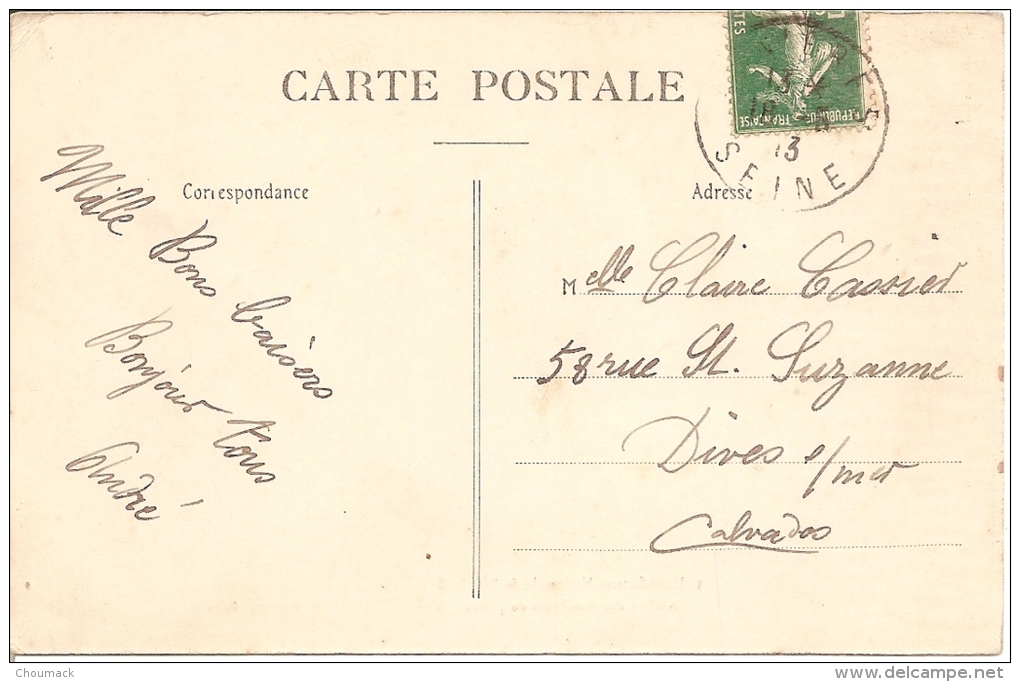 CARTE POSTALE
Correspondance
Mille Bons baisers
Bonjour tous
André
Adresse
Melle Claire Cassied
58 rue St. Suzanne
Dives s/mer
Calvados
POSTES
REPUBLIQUE FRANÇAISE
13
SEINE
Choumack
www.delcampe.net